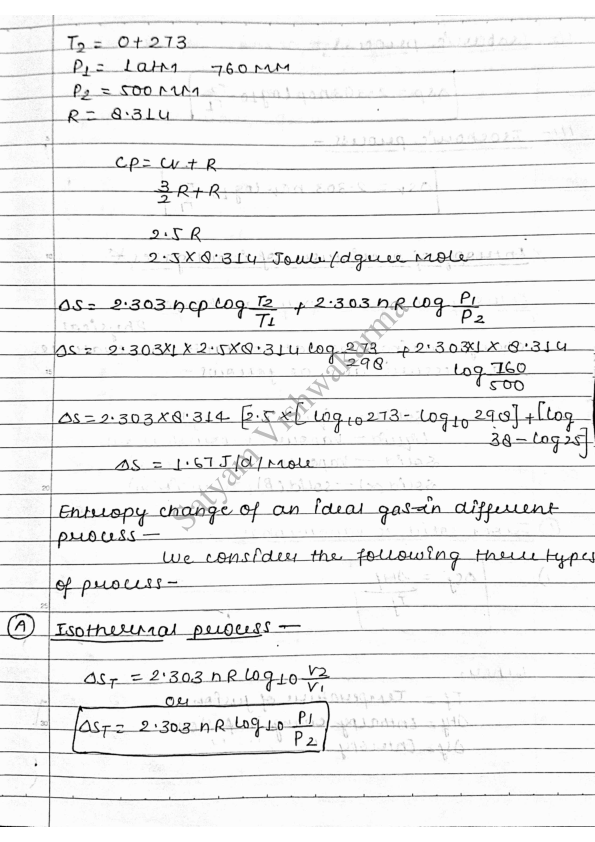 T2 = 0+273
P1 = 1atm 760MM
P2 = 500MM
R = 8.314
CP = CV + R
3/2 R + R
2.5 R
2.5 × 8.314 Joule/dgree Mole
ΔS = 2.303 ncp log T2/T1 + 2.303 nR log P1/P2
ΔS = 2.303×1×2.5×8.314 log 273/298 + 2.303×1×8.314
log 760/500
ΔS = 2.303×8.314 [2.5×[log10 273 - log10 298] + [log
38 - log25]
ΔS = 1.67 J/d/Mole
Entropy change of an ideal gas in different
process —
We consider the following there types
of process -
(A) Isothermal process —
ΔST = 2.303 nR log10 V2/V1
or
ΔST = 2.303 nR log10 P1/P2
Satyam Vishwakarma